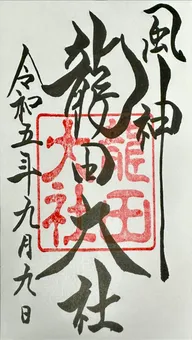 風神
龍田大社
令和五年九月九日
龍田
大社